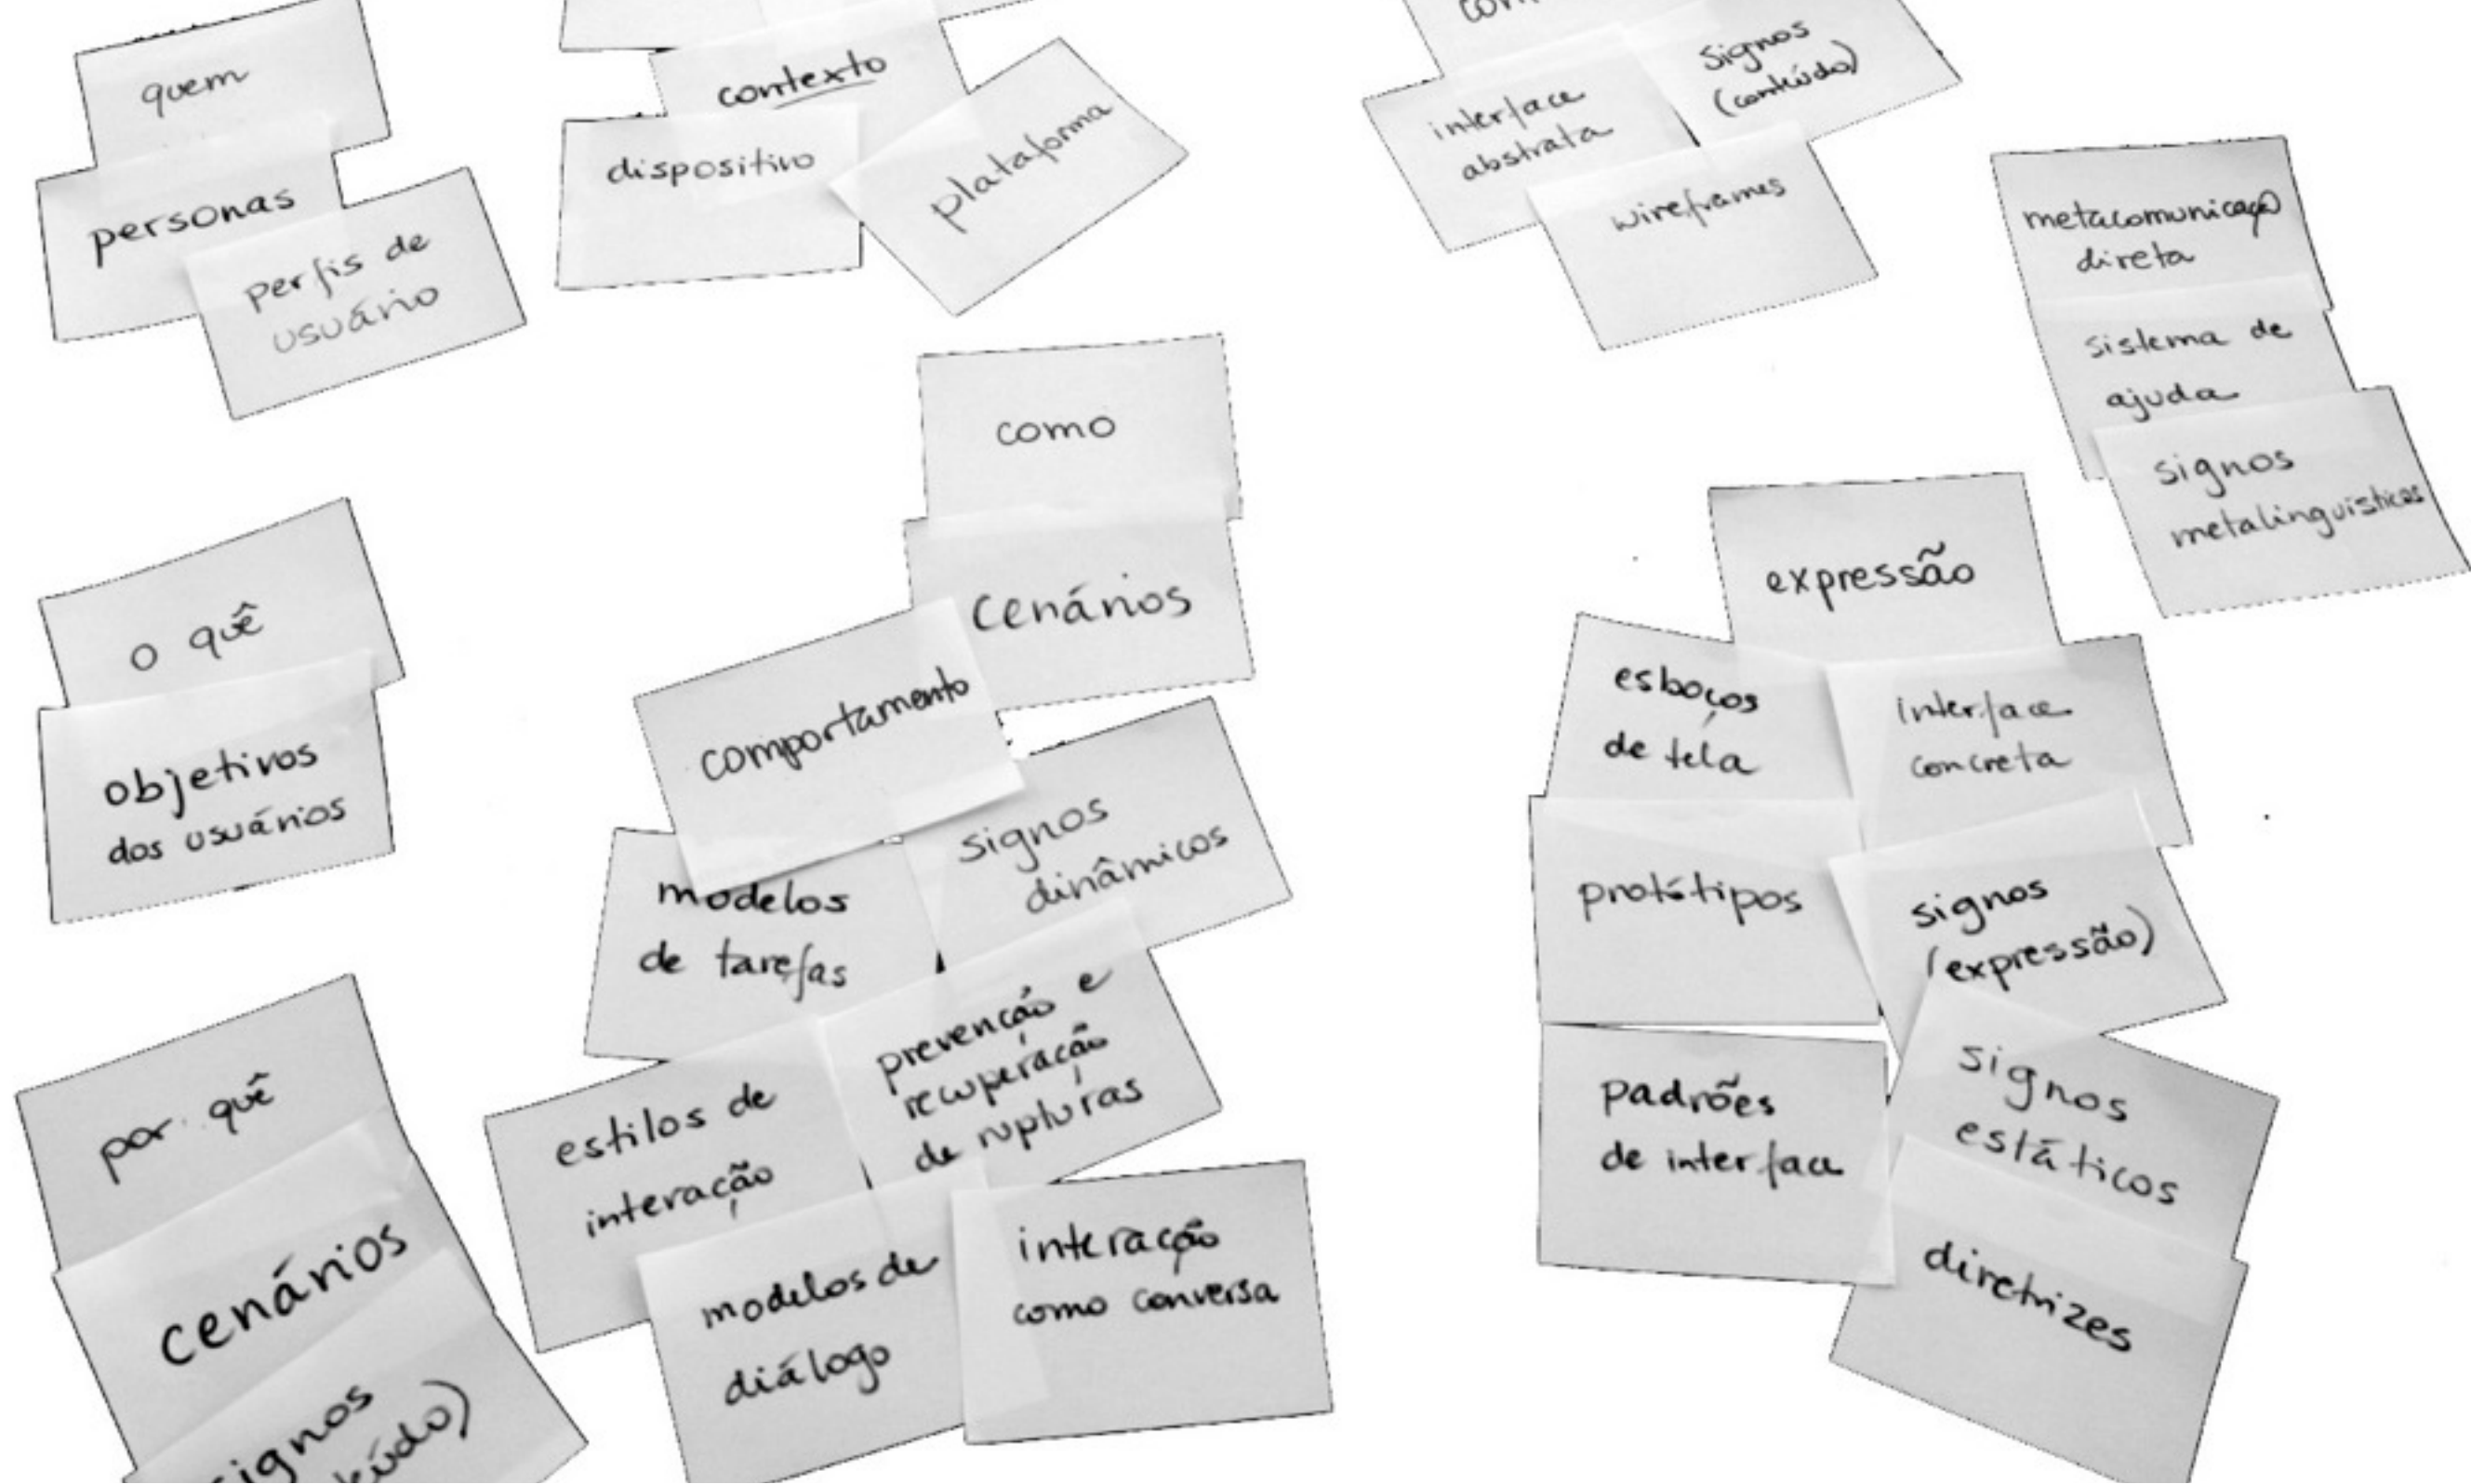 quem
personas
perfis de
usuário
contexto
dispositivo
plataforma
signos
(conteúdo)
interface
abstrata
wireframes
metacomunicação
direta
sistema de
ajuda
signos
metalinguísticos
o quê
objetivos
dos usuários
como
cenários
comportamento
signos
dinâmicos
modelos
de tarefas
prevenção e
recuperação
de rupturas
estilos de
interação
modelos de
diálogo
interação
como conversa
expressão
esboços
de tela
interface
concreta
protótipos
signos
(expressão)
padrões
de interface
signos
estáticos
diretrizes
por quê
cenários
signos